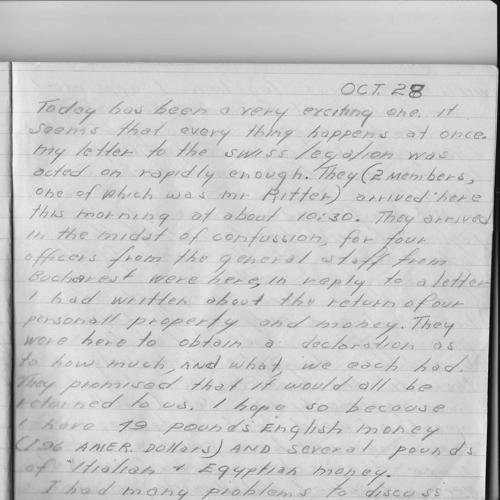 OCT. 28
Today has been a very exciting one. it
seems that every thing happens at once.
my letter to the swiss legation was
acted on rapidly enough. They (2 members,
one of which was mr Ritter) arrived here
this morning at about 10:30. They arrived
in the midst of confussion, for four
officers from the general staff from
Bucharest were here, in reply to a letter
I had written about the return of our
personall property and money. They
were here to obtain a declaration as
to how much, AND what, we each had.
They promised that it would all be
returned to us. I hope so because
I have 49 pounds English money
(196 AMER. Dollars) AND several pounds
of Itialian & Egyptian money.
I had many problems to discuss